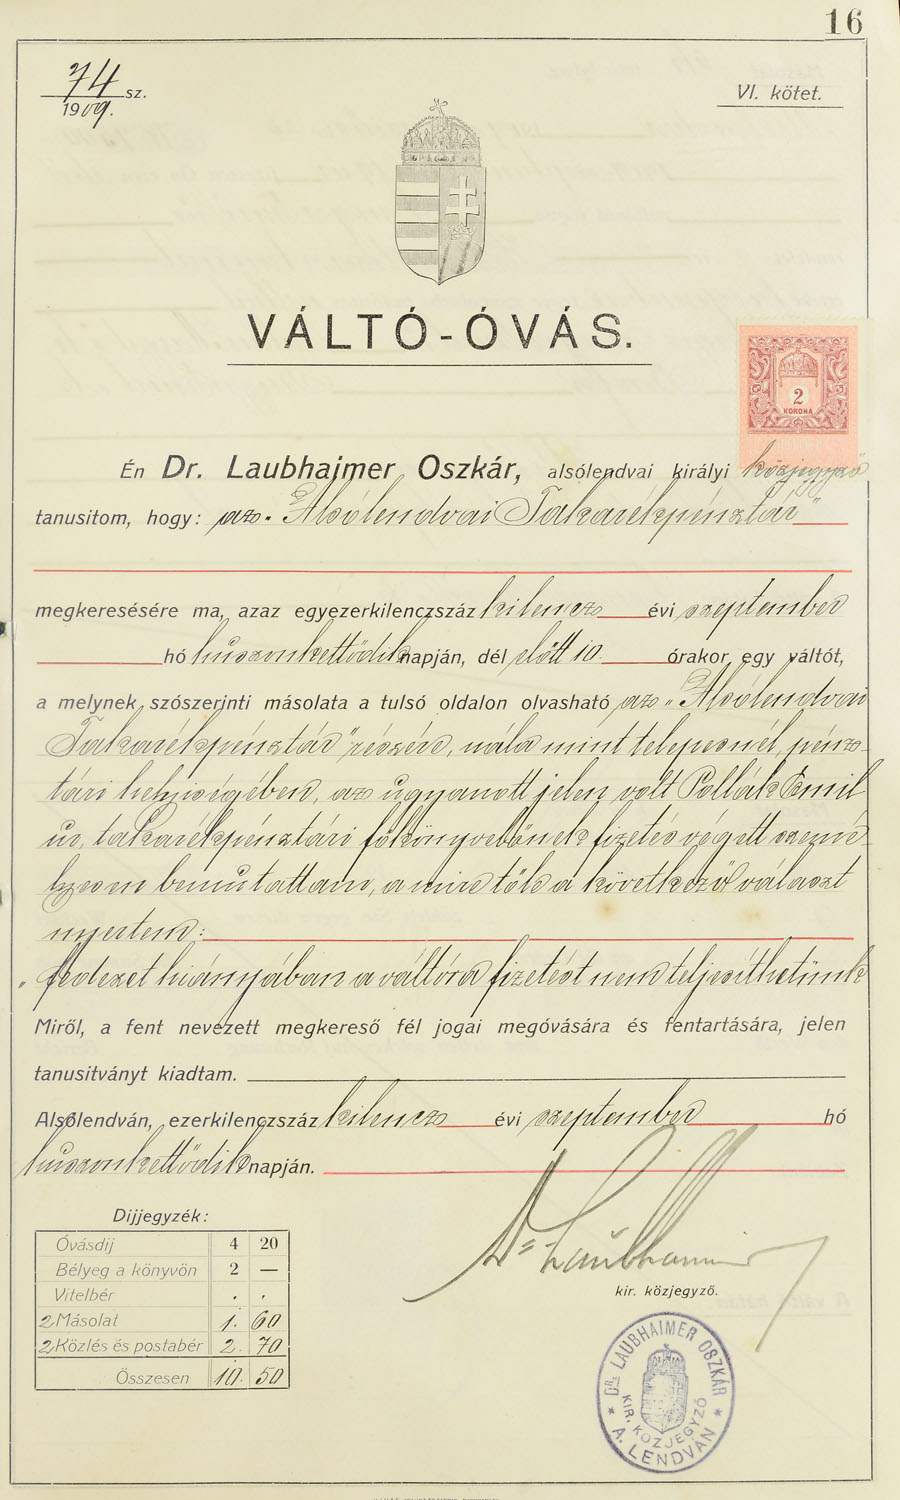 16
74 sz.
1909.
VI. kötet.
VÁLTÓ-ÓVÁS.
2
KORONA
Én Dr. Laubhaimer Oszkár, alsólendvai királyi közjegyző
tanusitom, hogy: az „Alsólendvai Takarékpénztár"
megkeresésére ma, azaz egyezerkilenczszáz kilencz évi szeptember
hó huszonkettődik napján, dél előtt 10. órakor egy váltót,
a melynek szószerinti másolata a tulsó oldalon olvasható az „Alsólendvai
Takarékpénztár" részére, nála mint telepesnél, pénz-
tári helyiségében, az ugyanott jelen volt Pollák Emil
ur, takarékpénztári főkönyvelőnek fizetés végett szemé-
lyesen bemutattam, a mire tőle a következő választ
nyertem:
„fedezet hiányjában a váltóra fizetést nem teljesíthetünk
Miről, a fent nevezett megkereső fél jogai megóvására és fentartására, jelen
tanusitványt kiadtam.
Alsólendván, ezerkilenczszáz kilencz évi szeptember hó
huszonkettődik napján.
Dr Laubhaimer
kir. közjegyző.
Dijjegyzék:
Óvásdij 4 20
Bélyeg a könyvön 2 —
Vitelbér . .
2 Másolat 1. 60
2 Közlés és postabér 2. 70
Összesen 10. 50
DR. LAUBHAIMER OSZKÁR
KIR. KÖZJEGYZŐ
* A. LENDVÁN *